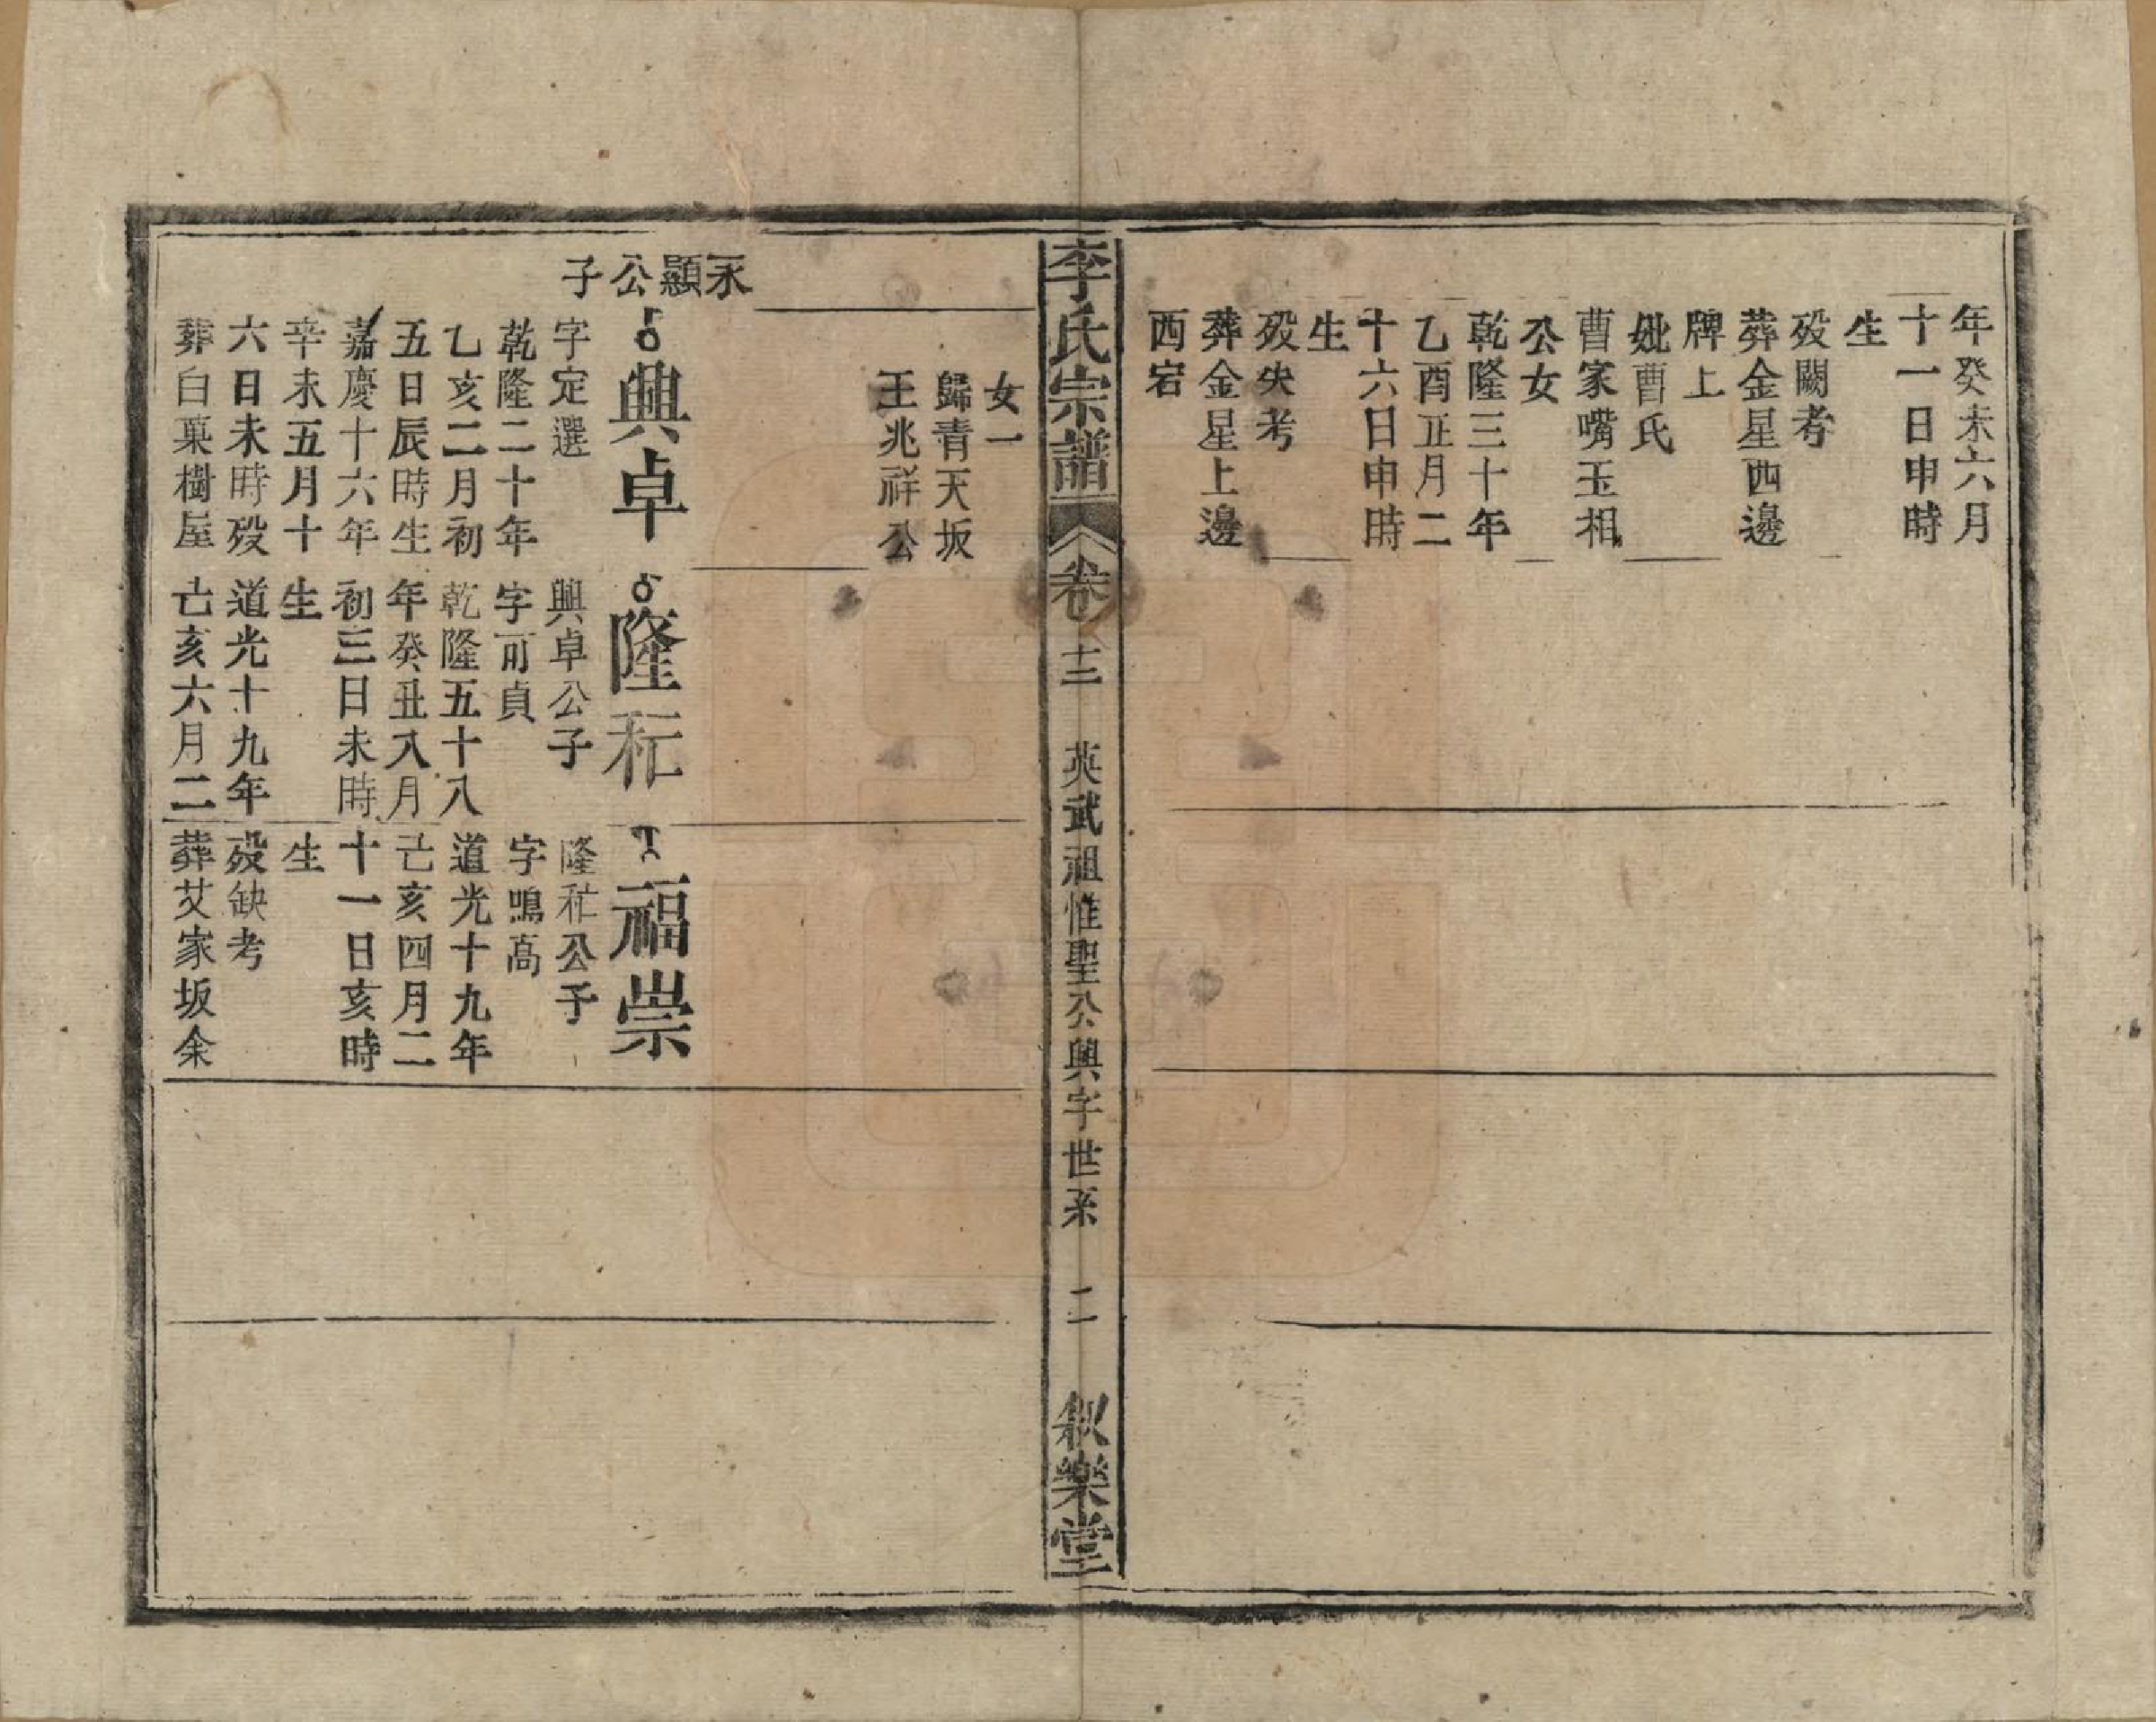 年癸未六月
十一日申時
生
殁闕考
葬金星西邊
牌上
妣曹氏
曹家嘴玉相
公女
乾隆三十年
乙酉正月二
十六日申時
生
殁失考
葬金星上邊
西宕
李氏宗譜
卷十三
英武祖惟聖公興字世系
二
敘樂堂
女一
歸青天坂
王兆祥公
永顯公子
興卓
字定選
乾隆二十年
乙亥二月初
五日辰時生
嘉慶十六年
辛未五月十
六日未時殁
葬白菓樹屋
隆秅
興卓公子
字可貞
乾隆五十八
年癸丑八月
初三日未時
生
道光十九年
己亥六月二
福崇
隆秅公子
字鳴高
道光十九年
己亥四月二
十一日亥時
生
殁缺考
葬艾家坂余